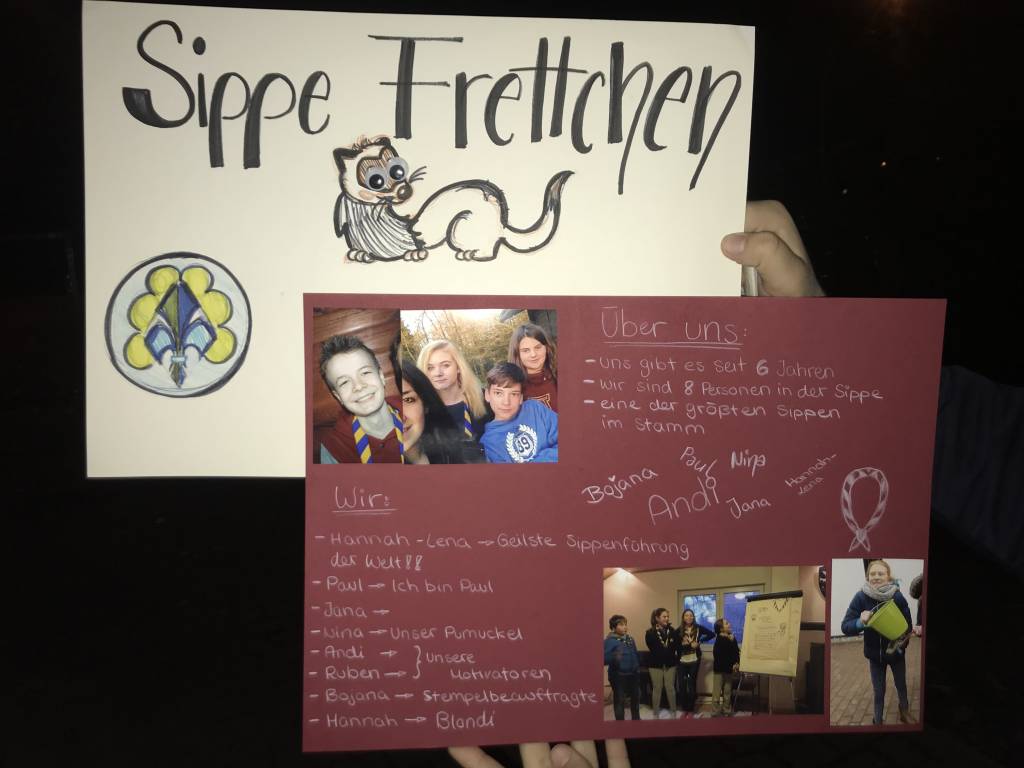 Sippe Frettchen
Über uns:
- uns gibt es seit 6 Jahren
- wir sind 8 Personen in der Sippe
- eine der größten Sippen
im Stamm
Bojana
Paul
Nina
Andi
Jana
Hannah-
Lena
Wir:
- Hannah-Lena → Geilste Sippenführung
der Welt!!
- Paul → Ich bin Paul
- Jana →
- Nina → Unser Pumuckel
- Andi → } Unsere
- Ruben → } Motivatoren
- Bojana → Stempelbeauftragte
- Hannah → Blondi
89